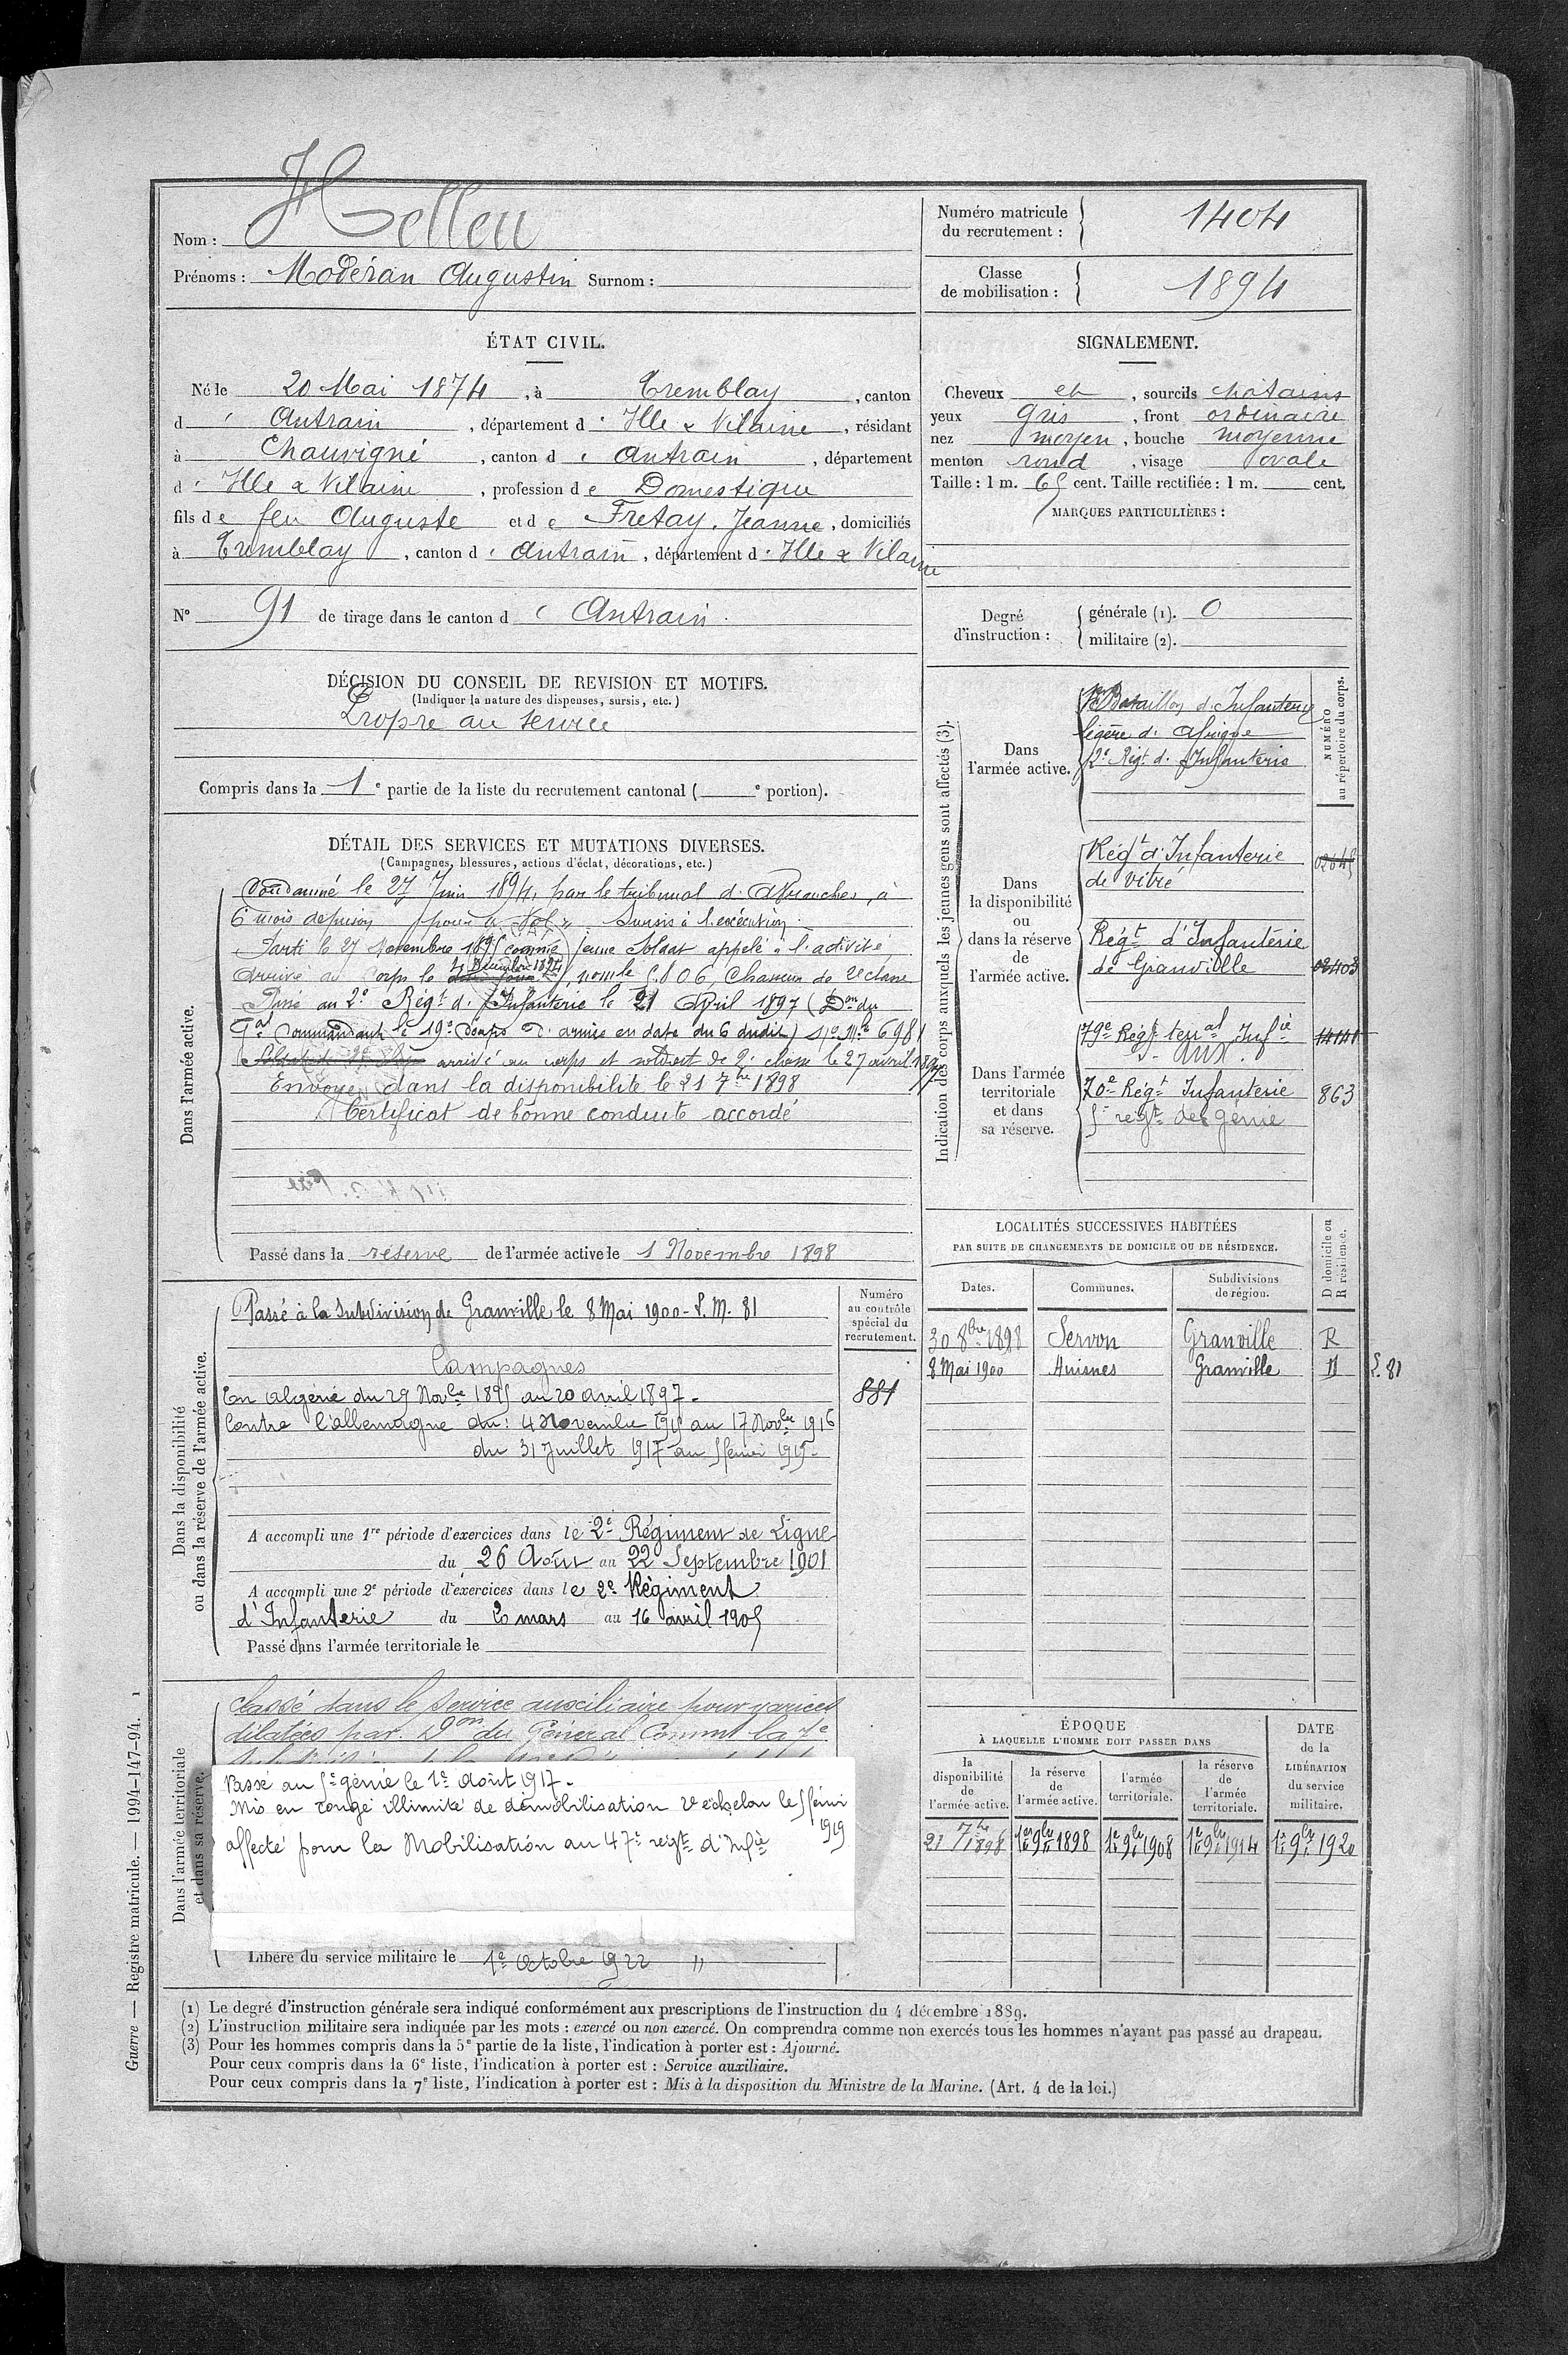 Nom : Helleu
Prénoms : Modéran Augustin Surnom :
Numéro matricule du recrutement : 1404
Classe de mobilisation : 1894
ÉTAT CIVIL.
Né le 20 Mai 1874, à Tremblay, canton
d' Antrain, département d' Ille & Vilaine, résidant
à Chauvigné, canton d' Antrain, département
d' Ille & Vilaine, profession de Domestique
fils de feu Auguste et de Fretay, Jeanne, domiciliés
à Tremblay, canton d' Antrain, département d' Ille & Vilaine
N° 91 de tirage dans le canton d' Antrain.
SIGNALEMENT.
Cheveux et, sourcils chatains
yeux gris, front ordinaire
nez moyen, bouche moyenne
menton rond, visage ovale
Taille : 1 m. 65 cent. Taille rectifiée : 1 m. cent.
MARQUES PARTICULIÈRES :
Degré d'instruction :
générale (1). 0
militaire (2).
DÉCISION DU CONSEIL DE REVISION ET MOTIFS.
(Indiquer la nature des dispenses, sursis, etc.)
Propre au service
Compris dans la 1e partie de la liste du recrutement cantonal ( e portion).
DÉTAIL DES SERVICES ET MUTATIONS DIVERSES.
(Campagnes, blessures, actions d'éclat, décorations, etc.)
Dans l'armée active.
Condamné le 27 Juin 1894, par le tribunal d'Avranches, à
6 mois de prison pour "Vol" Sursis à l'exécution.
Parti le 27 Novembre 1895 comme jeune Soldat appelé à l'activité
Arrivé au Corps le 4 Décembre 1895, Chasseur de 2e classe
Passé au 2e Régt d'Infanterie le 21 Avril 1897 (Don du
Gal Commandant le 19e Corps d'armée en date du 6 dudit) No Mle 6981
arrivé au corps et soldat de 2e classe le 27 avril 1897
Envoyé dans la disponibilité le 21 7bre 1898
Certificat de bonne conduite accordé
Passé dans la réserve de l'armée active le 1 Novembre 1898
Indication des corps auxquels les jeunes gens sont affectés (3).
NUMÉRO au répertoire du corps.
Dans l'armée active.
Bataillon d'Infanterie
légère d'Afrique
2e Régt d'Infanterie
Dans la disponibilité ou dans la réserve de l'armée active.
Régt d'Infanterie
de Vitré
Régt d'Infanterie
de Granville
02403
Dans l'armée territoriale et dans sa réserve.
79e Régt teral Infie
aux.
70e Régt Infanterie 863
5e régt de génie
Dans la disponibilité ou dans la réserve de l'armée active.
Numéro au contrôle spécial du recrutement.
881
Passé à la Subdivision de Granville le 8 Mai 1900 - S. M. 81
Campagnes
En Algérie du 29 Novbre 1895 au 20 avril 1897.
Contre l'allemagne du : 4 Novembre 1915 au 17 Novbre 1916
du 31 Juillet 1917 au 5 février 1919.
A accompli une 1re période d'exercices dans le 2e Régiment de Ligne
du 26 Août au 22 Septembre 1901
A accompli une 2e période d'exercices dans le 2e Régiment
d'Infanterie du 20 mars au 16 avril 1905
Passé dans l'armée territoriale le
LOCALITÉS SUCCESSIVES HABITÉES
PAR SUITE DE CHANGEMENTS DE DOMICILE OU DE RÉSIDENCE.
Dates. Communes. Subdivisions de région. D domicile ou R résidence.
30 8bre 1898 Servon Granville R
8 Mai 1900 Huisnes Granville D S. 81
Dans l'armée territoriale et dans sa réserve.
Classé dans le service auxiliaire pour varices
dilatées par Don du Général Commt la 7e
Passé au 5e génie le 1er Août 1917.
Mis en congé illimité de démobilisation 2e échelon le 5 février 1919
affecté pour la Mobilisation au 47e régt d'Infie
Libéré du service militaire le 1er Octobre 1922
ÉPOQUE
À LAQUELLE L'HOMME DOIT PASSER DANS
la disponibilité de l'armée active.
la réserve de l'armée active.
l'armée territoriale.
la réserve de l'armée territoriale.
DATE de la LIBÉRATION du service militaire.
21 7bre 1898 1er 9bre 1898 1er 9bre 1908 1er 9bre 1914 1er 9bre 1920
(1) Le degré d'instruction générale sera indiqué conformément aux prescriptions de l'instruction du 4 décembre 1889.
(2) L'instruction militaire sera indiquée par les mots : exercé ou non exercé. On comprendra comme non exercés tous les hommes n'ayant pas passé au drapeau.
(3) Pour les hommes compris dans la 5e partie de la liste, l'indication à porter est : Ajourné.
Pour ceux compris dans la 6e liste, l'indication à porter est : Service auxiliaire.
Pour ceux compris dans la 7e liste, l'indication à porter est : Mis à la disposition du Ministre de la Marine. (Art. 4 de la loi.)
Guerre — Registre matricule. — 1994-147-94. 1